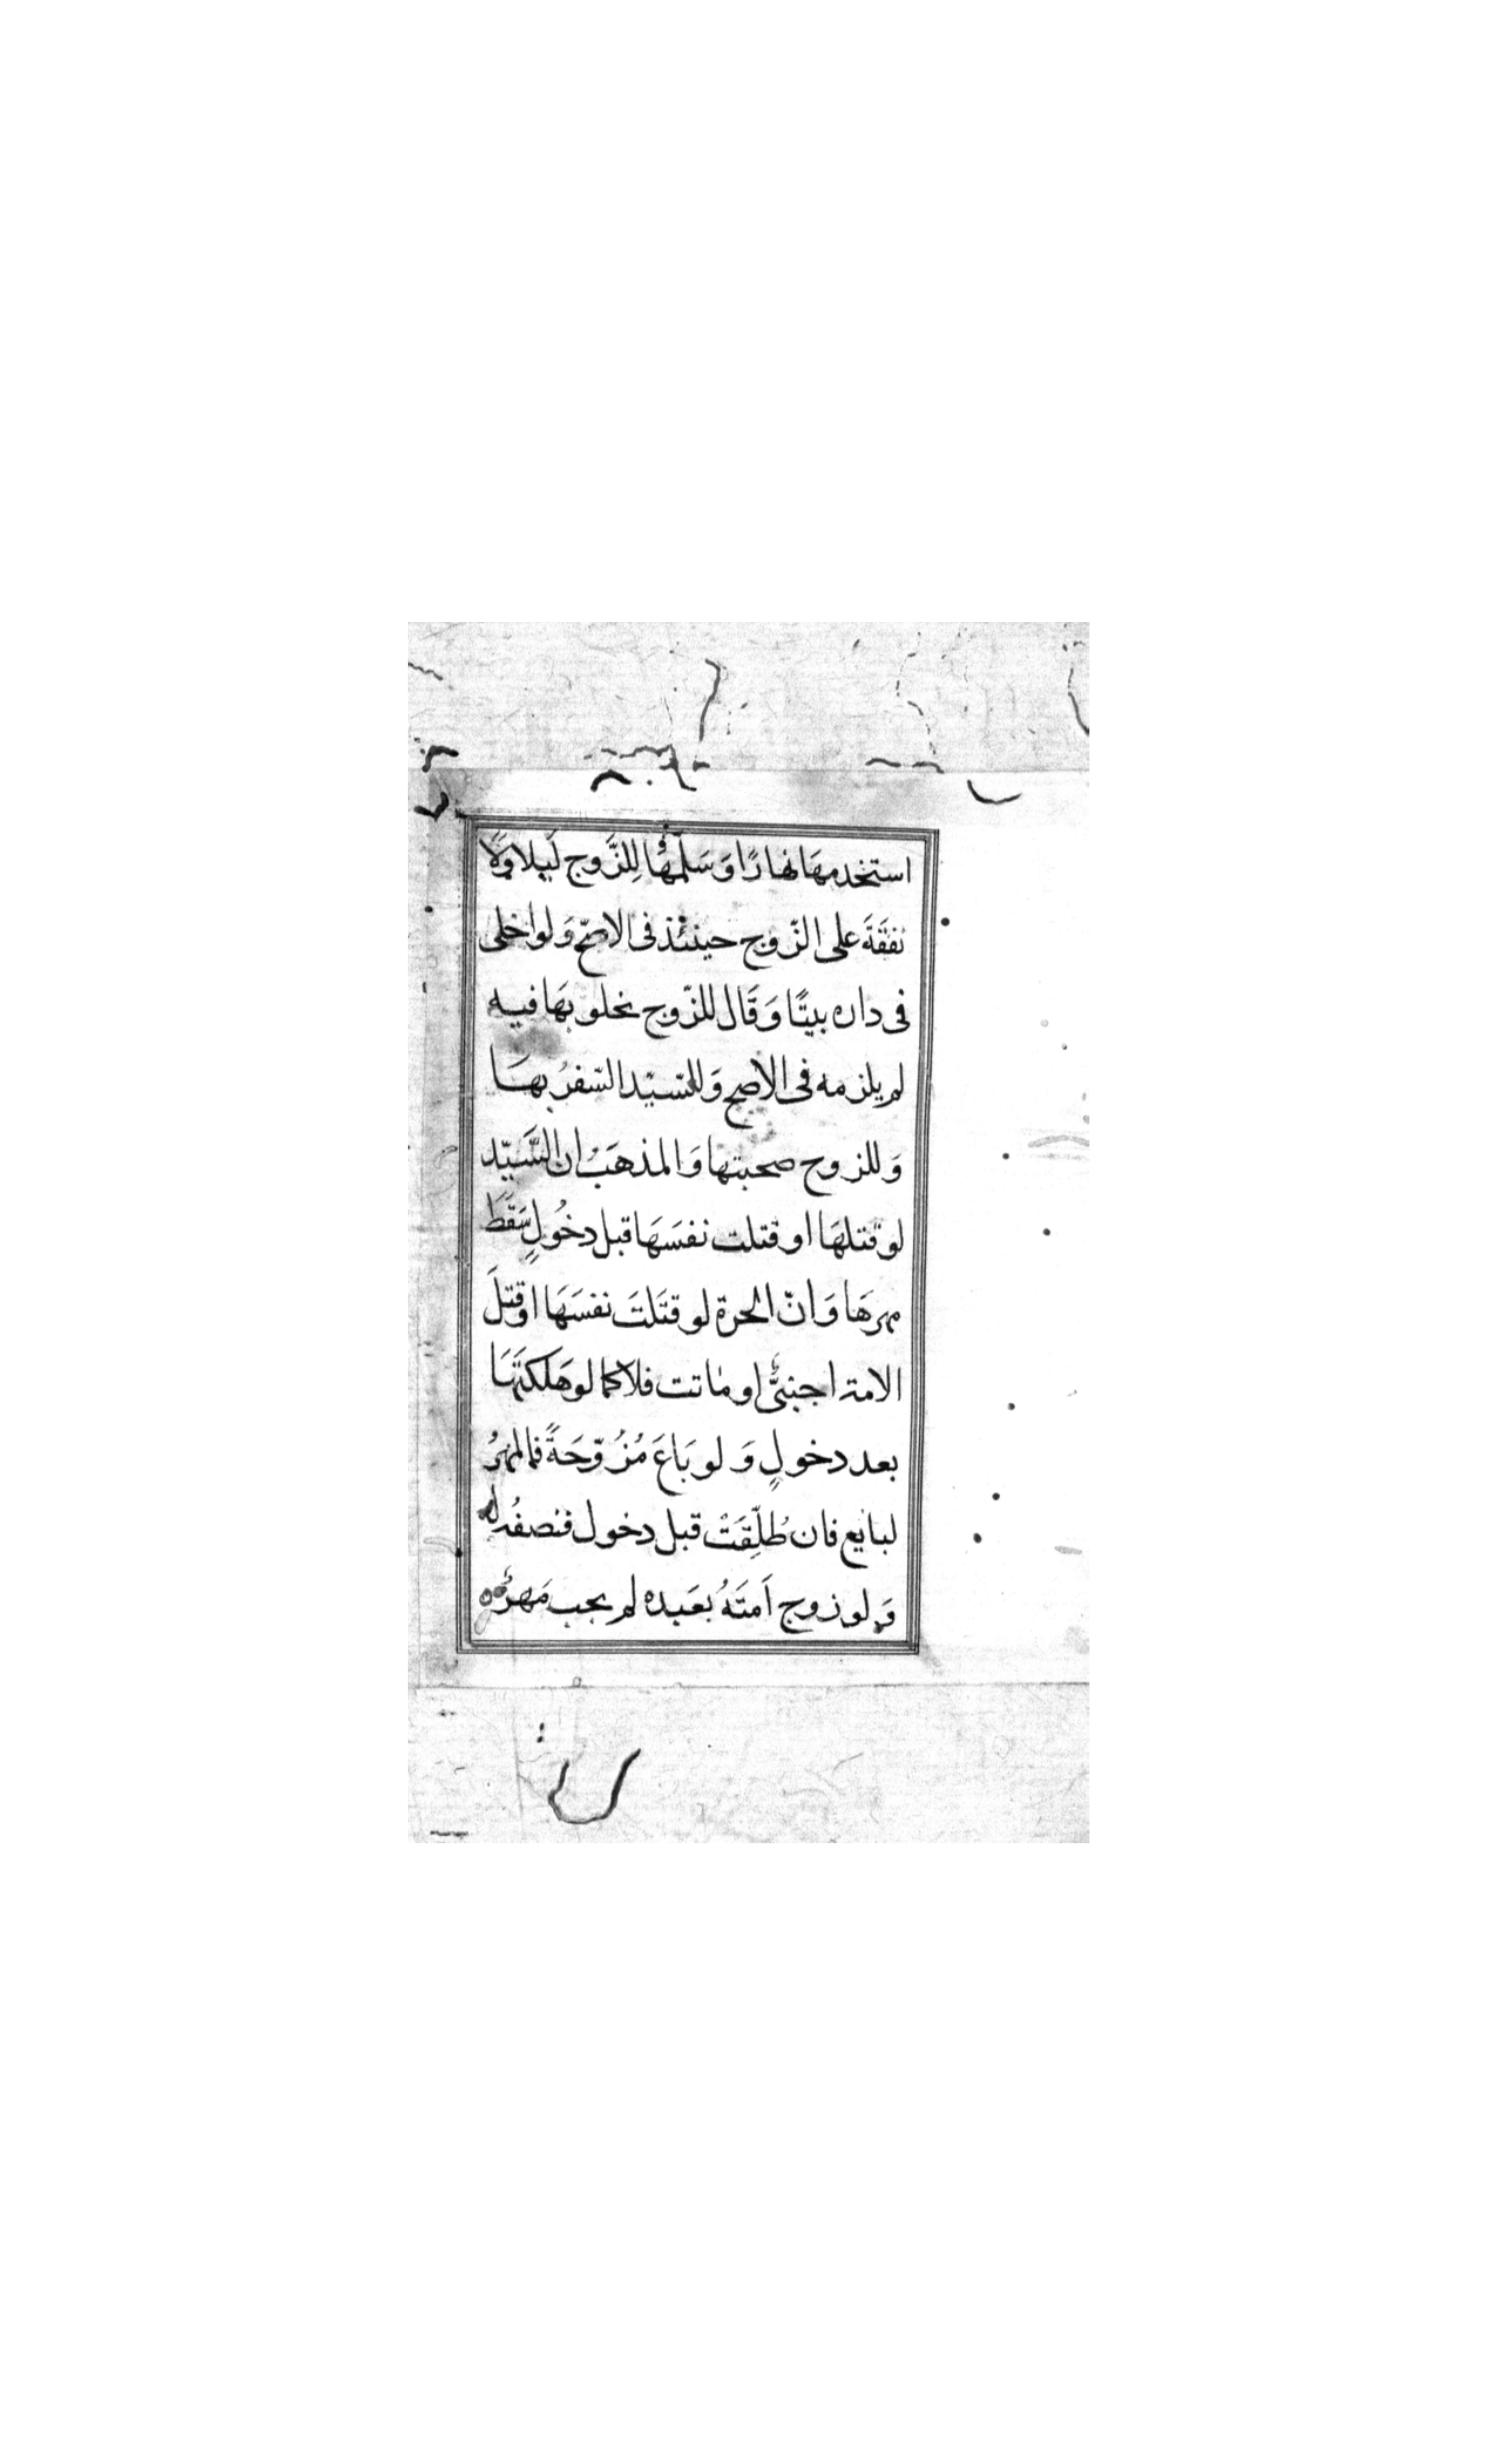 استخدمهَا نهارًا وَسَلَّمَهَا لِلزَّوج لَيلا وَلَا
نفقَةَ على الزّوج حينئذ فى الاصحّ وَلو اخلى
فى داره بيتًا وَقَال للزّوج تخلو بهَا فيه
لم يلزمه فى الاصح وَللسّيّد السّفرُ بهَا
وَللزوج صحبتها وَالمذهَبُ ان السَّيّد
لو قتلهَا او قتلت نفسَهَا قبل دخُولٍ سَقَطَ
مهرهَا وَانّ الحرة لو قتَلتَ نفسَهَا او قتلَ
الامة اجنبىٌّ او ماتت فلا كما لو هَلكَتَها
بعد دخولٍ وَلو بَاعَ مُزُوّجَةً فالمهرُ
لبايع فان طُلِّقَتْ قبل دخول فنصفُه له
وَلو زوج اَمتَهُ بعَبده لم يجب مَهرٌ